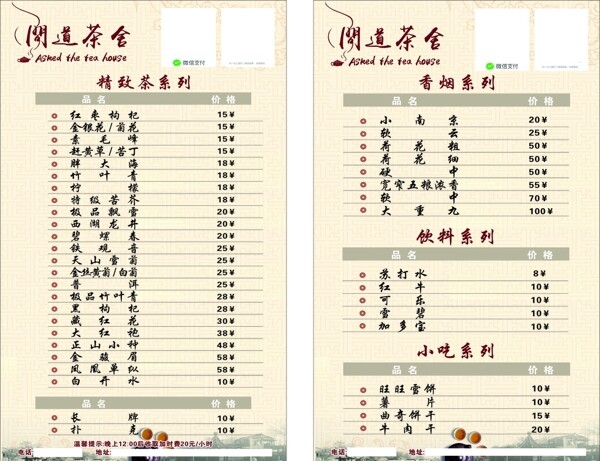 问道茶舍
Asked the tea house
微信支付
精致茶系列
品名 价格
红枣枸杞 15¥
金银花/菊花 15¥
素毛峰 15¥
赶黄草/苦丁 15¥
胖大海 18¥
竹叶青 18¥
柠檬 18¥
特级苦荞 18¥
极品飘雪 20¥
西湖龙井 20¥
碧螺春 20¥
铁观音 25¥
天山雪菊 25¥
金丝黄菊/白菊 25¥
普洱 25¥
极品竹叶青 28¥
黑枸杞 28¥
藏红花 30¥
大红袍 38¥
正山小种 48¥
金骏眉 58¥
凤凰单纵 58¥
白开水 10¥
品名 价格
长牌 10¥
扑克 10¥
温馨提示:晚上12:00后收取加时费20元/小时
电话: 地址:
问道茶舍
Asked the tea house
微信支付
香烟系列
品名 价格
小南京 20¥
软云 25¥
荷花粗 50¥
荷花细 50¥
硬中 50¥
宽窄五粮浓香 55¥
软中 70¥
大重九 100¥
饮料系列
品名 价格
苏打水 8¥
红牛 10¥
可乐 10¥
雪碧 10¥
加多宝 10¥
小吃系列
品名 价格
旺旺雪饼 10¥
薯片 10¥
曲奇饼干 15¥
牛肉干 20¥
电话: 地址: